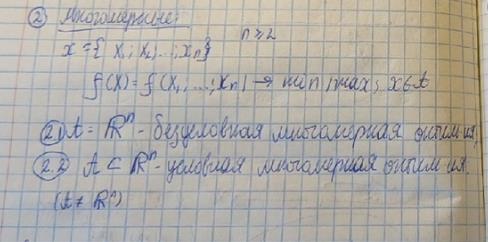 ② Многомерные:
x = {x₁; x₂; ...; xₙ} n ≥ 2
f(x) = f(x₁; ...; xₙ) → min/max; x ∈ A
2.1 A = ℝⁿ - безусловная многомерная оптим-ия,
2.2 A ⊂ ℝⁿ - условная многомерная оптим-ия.
(A ≠ ℝⁿ)